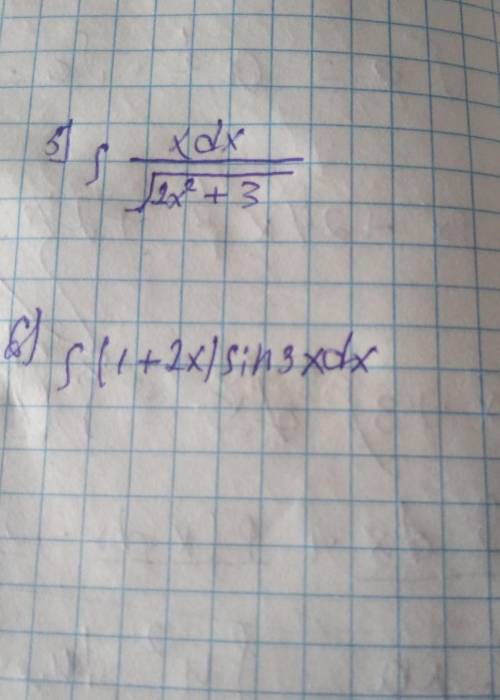 5) ∫ xdx / √(2x² + 3)
6) ∫ (1+2x) sin3xdx